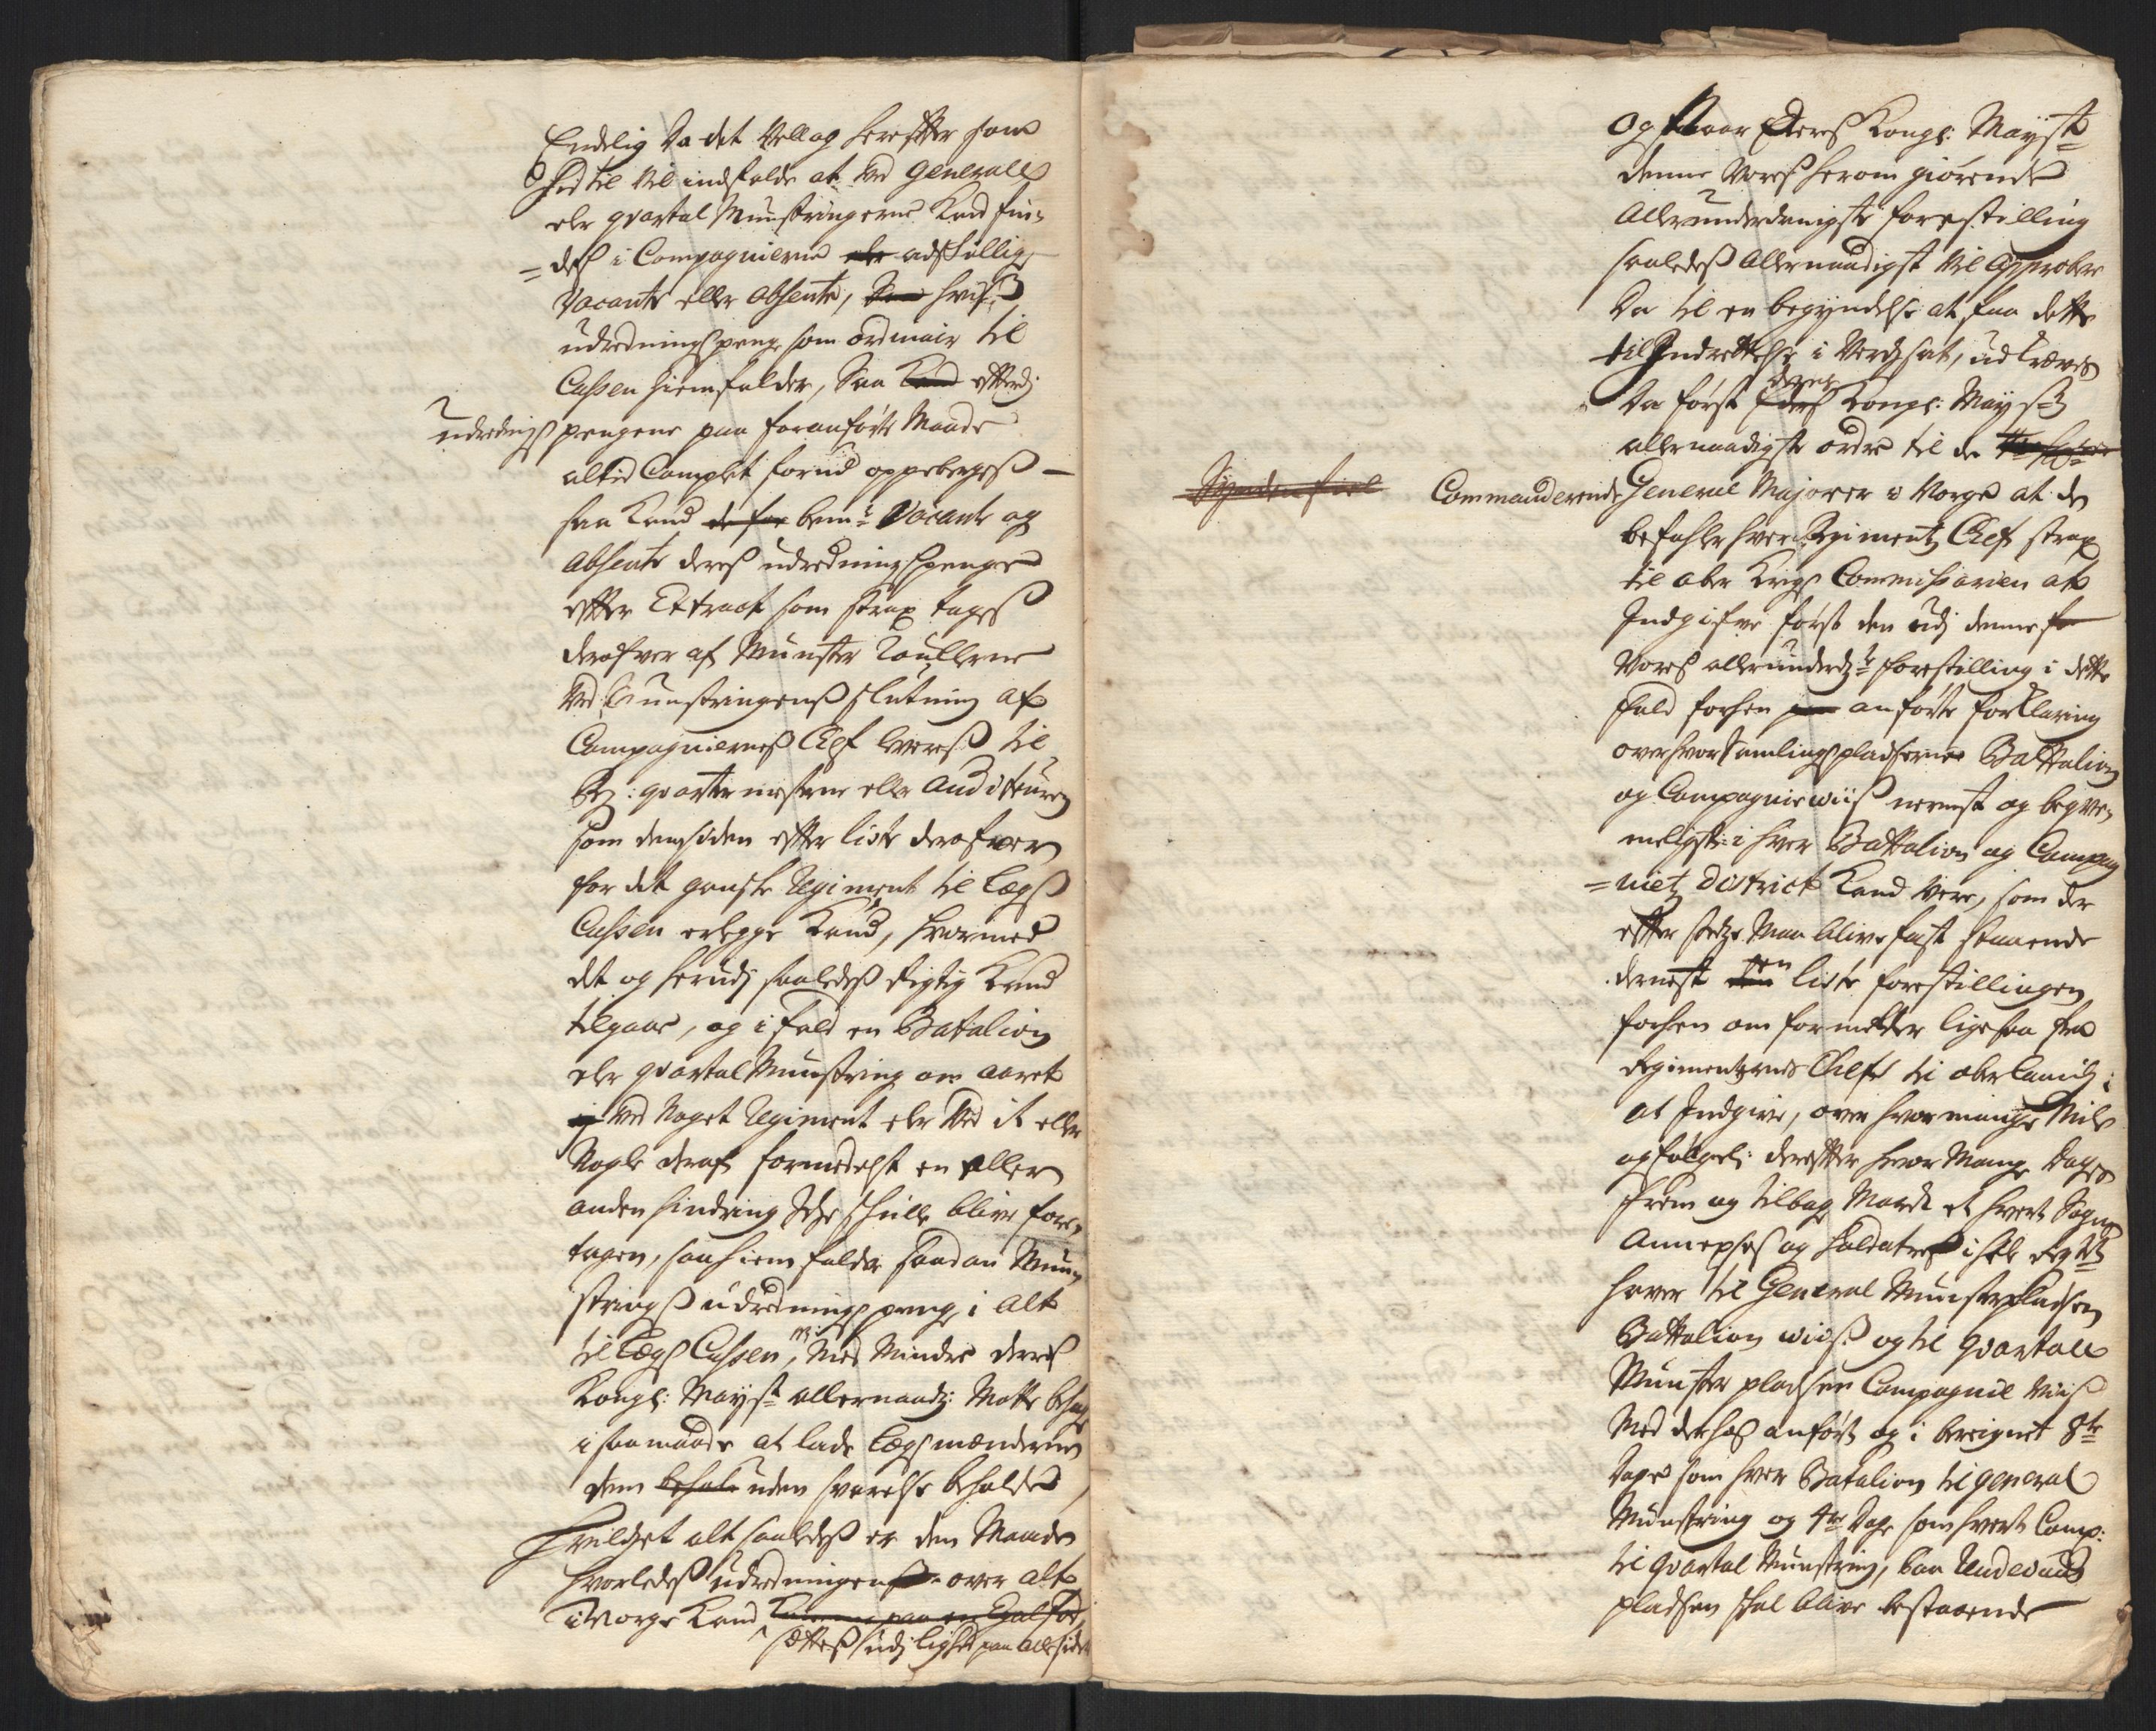 Endelig da det Vel og herefter som
hid til vil indfalde at ved Generale
eler qvartal Munstringerne kand fin-
=des i Compagnierne adskillige
Vacante eller absente, hvis
udredningspenge som ordinair til
Cassen hiemfalder, Saa efterdj
udrednings pengene paa foranførte Maade
altid Complet forud oppebergeß
saa kand bem:te Vacante og
absente deres udredningspenge
efter Extract som strax tages
derofver af Munster Roullerne
ved Munstringenß slutning af
Compagnierneß Chef leverß til
Reg: qvartermesterne eller auditeuren
som dem siden efter liste derofver
for det gandske Regiment til Lægß
Cassen erlegge kand, hvormed
det og herudj saaledeß rigtig kand
tilgaae, og i fald en Batalion
eler qvartal Munstring om aaret
ved Noget Regiment eler ved it eller
Nogle deraf formedelst en eller
anden hindring Icke skulle blive fore-
tagen, saa hiemfalder saadan Mun-
stringß udrednings penge i alt
til Lægs Cassen, med Mindre deres
Kongl: Mayst allernaadig: Motte behage
i saa maade at lade Lægsmændene
dem uden svarelse beholde,
Hvilchet alt saaledeß er den Maade
hvorledeß udredningen over alt
i Norge kand
setteß udj lighed paa alle sider
Og naar Ederß Kongl: Mayst
denne Voreß herom giørende
Allerunderdanigste forestilling
saaledeß allernaadigst vil approbere
da til en begyndelse at faa dette
til Indrettelse i Verch sat, udkræves
da først deres Kongl: Mayst
allernaadigste ordre til de
Syndenfiel Commanderende General Majorer i Norge at de
befahler hver Regimentz Chef strax
til ober Krigs Commissarien at
Indgifve først den udj denne
Vores allerunderd:te forestilling i dette
fald forhen anførte forklaring
over hvor Samlingspladserne Battalion
og Compagnieviiß nermest og beqve-
meligst i hver Battalion og Compag-
=niets District kand være, som der
efter stedze Maa blive fast staaende
dernest den liste forestillingen
forhen om formelder ligesaa fra
Regimenternes Chefs til ober Comiß:
at Indgive, over hvor mange Mile
og følgel: derefter hvor Mange dage
frem og tilbage March et hvert Sogns
Annexes og Soldaters i hele Regt
haver til General Munsterpladsen
Battalion wiiß og til qvartal
Munster pladsen Compagnie viiß
Med derhos anført og i bereignet 8te
dage som hver Batalion til general
Munstring og 4re dage som hvert Comp:
til qvartal Munstring, paa Rendevous
pladsen skal blive bestaaende